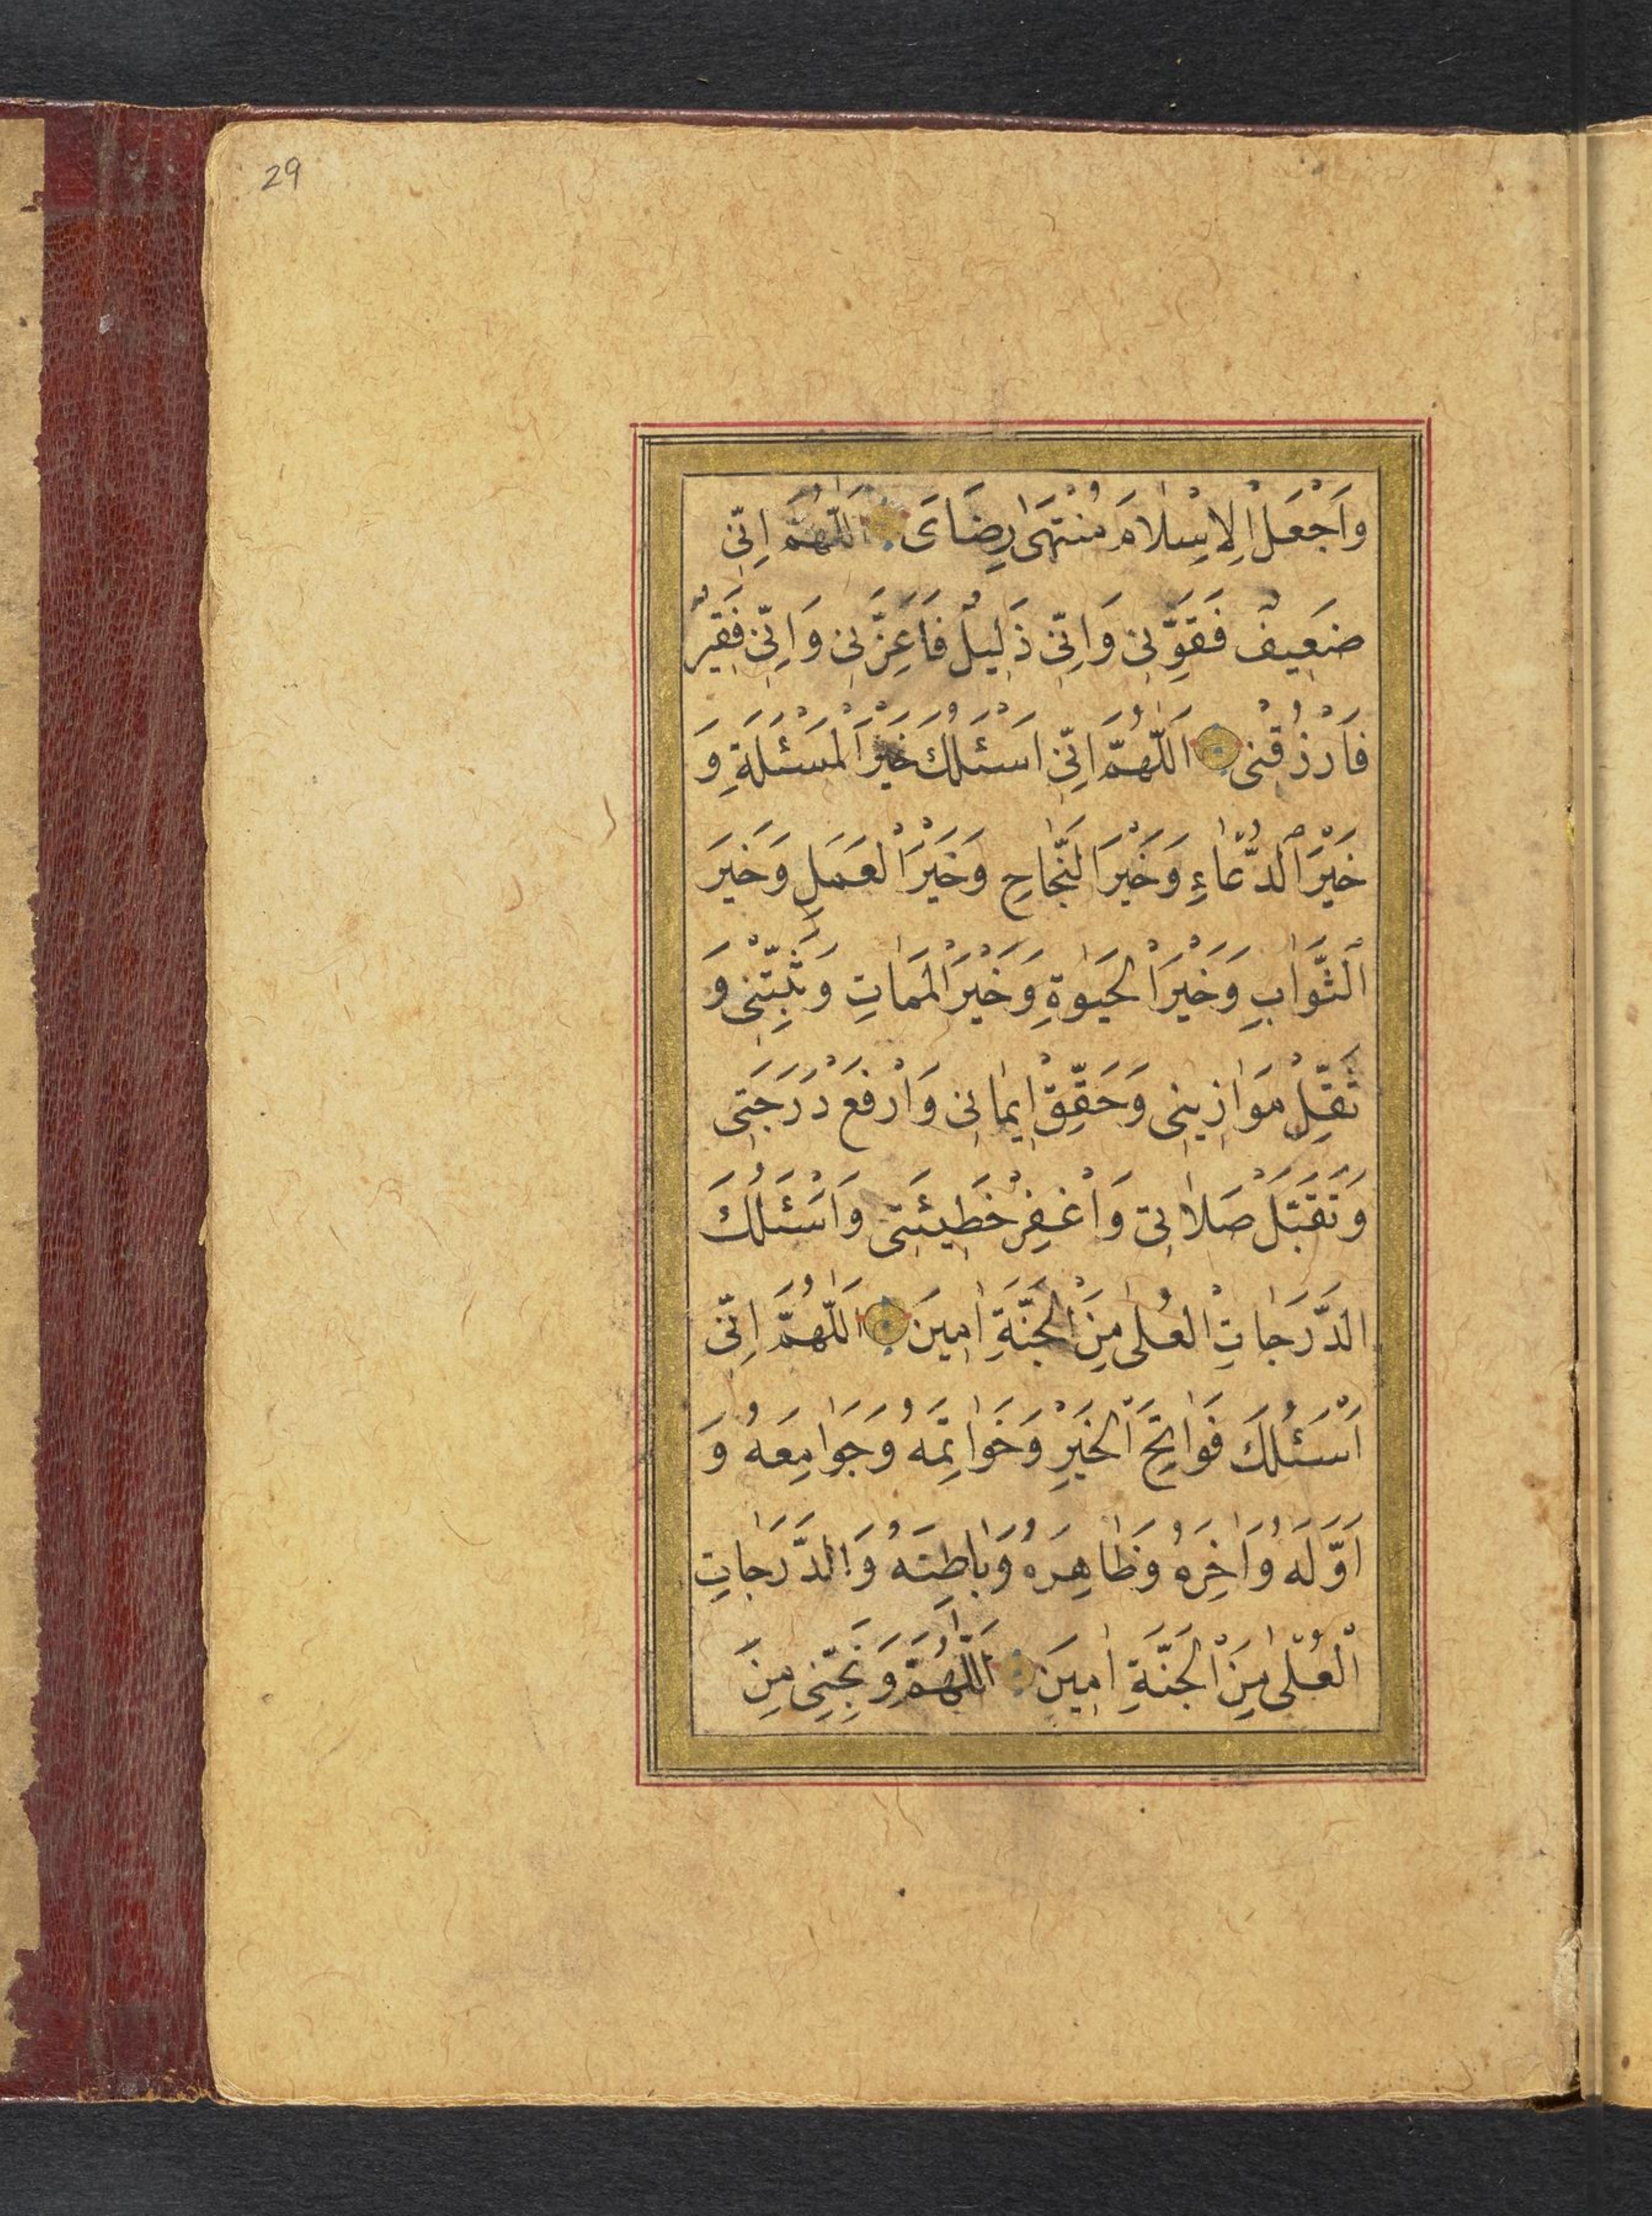 29
وَاجْعَلْ الْاِسْلَامَ مُنْتَهٰى رِضَاىَ اَللّٰهُمَّ اِنِّى
ضَعِيفٌ فَقَوِّنِى وَاِنِّى ذَلِيلٌ فَاَعِزَّنِى وَاِنِّى فَقِيرٌ
فَارْزُقْنِى اَللّٰهُمَّ اِنِّى اَسْئَلُكَ خَيْرَ الْمَسْئَلَةِ وَ
خَيْرَ الدُّعَاءِ وَخَيْرَ النَّجَاحِ وَخَيْرَ الْعَمَلِ وَخَيرَ
الثَّوَابِ وَخَيْرَ الْحَيٰوةِ وَخَيْرَ الْمَمَاتِ وَثَبِّتْنِى وَ
ثَقِّلْ مَوَازِينِى وَحَقِّقْ اِيمَانِى وَارْفَعْ دَرَجَتِى
وَتَقَبَّلْ صَلَاتِى وَاغْفِرْ خَطِيئَتِى وَاَسْئَلُكَ
الدَّرَجَاتِ الْعُلٰى مِنَ الْجَنَّةِ اٰمِينَ اَللّٰهُمَّ اِنِّى
اَسْئَلُكَ فَوَاتِحَ الْخَيْرِ وَخَوَاتِمَهُ وَجَوَامِعَهُ وَ
اَوَّلَهُ وَاٰخِرَهُ وَظَاهِرَهُ وَبَاطِنَهُ وَالدَّرَجَاتِ
الْعُلٰى مِنَ الْجَنَّةِ اٰمِينَ اَللّٰهُمَّ وَنَجِّنِى مِنَ